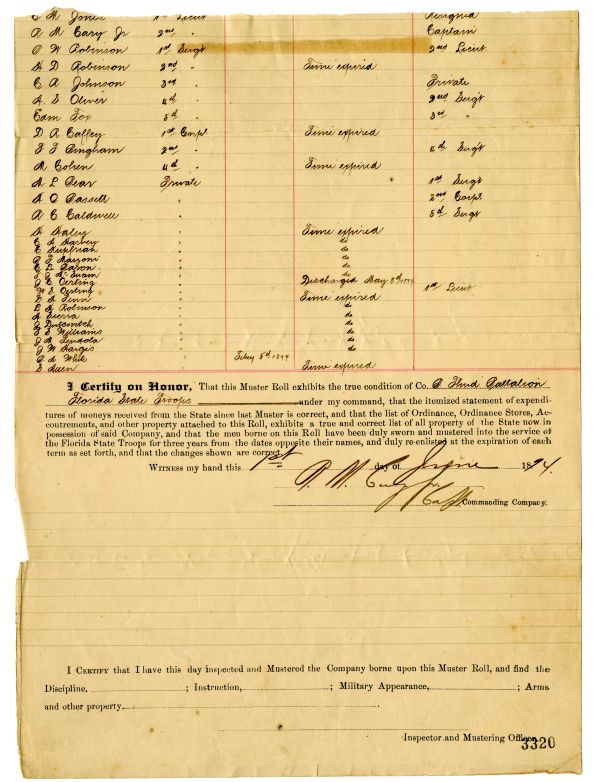 Jones 1st Lieut Resigned
R M Cary Jr 2nd " Captain
C W Robinson 1st Sergt 2nd Lieut
H D Robinson 2nd " Time expired
C A Johnson 3rd " Private
A E Oliver 4th " 2nd Sergt
Edm Fox 5th " 3rd "
D R Calley 1st Corpl Time expired
F F Bingham 2nd " 4th Sergt
M Cohen 4th " Time expired
M L Bear Private 1st Sergt
A O Bassett " 2nd Corpl
R C Caldwell " 5th Sergt
H Haley " Time expired
Harvey " do
" do
" do
" do
" do
J E Oerting " Discharged May 3rd 1894
W E Oerting " Time expired 1st Lieut
" do
L A Robinson " do
A Sierra " do
" do
Williams " do
J A Sendola " do
J W Hargis " do
White " Feby 5th 1894
" Time expired
I Certify on Honor, That this Muster Roll exhibits the true condition of Co. B Third Battalion
Florida State Troops under my command, that the itemized statement of expendi-
tures of moneys received from the State since last Muster is correct, and that the list of Ordinance, Ordinance Stores, Ac-
coutrements, and other property attached to this Roll, exhibits a true and correct list of all property of the State now in
possession of said Company, and that the men borne on this Roll have been duly sworn and mustered into the service of
the Florida State Troops for three years from the dates opposite their names, and duly re-enlisted at the expiration of each
term as set forth, and that the changes shown are correct.
Witness my hand this 1st day of June 1894.
R. M. Cary Jr
Capt. Commanding Company.
I Certify that I have this day inspected and Mustered the Company borne upon this Muster Roll, and find the
Discipline, ; Instruction, ; Military Appearance, ; Arms
and other property,
Inspector and Mustering Officer.
3320